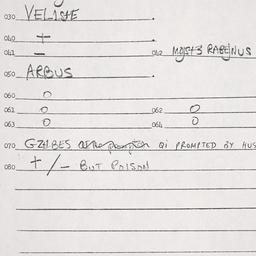 030 VELISTE
040 +
041 - 042 MOIST3 RABEJNUS
050 ARBUS
060 0
061 0 062 0
063 0 064 0
070 GZHBES QI PROMPTED BY AUS
080 +/- BUT POISON